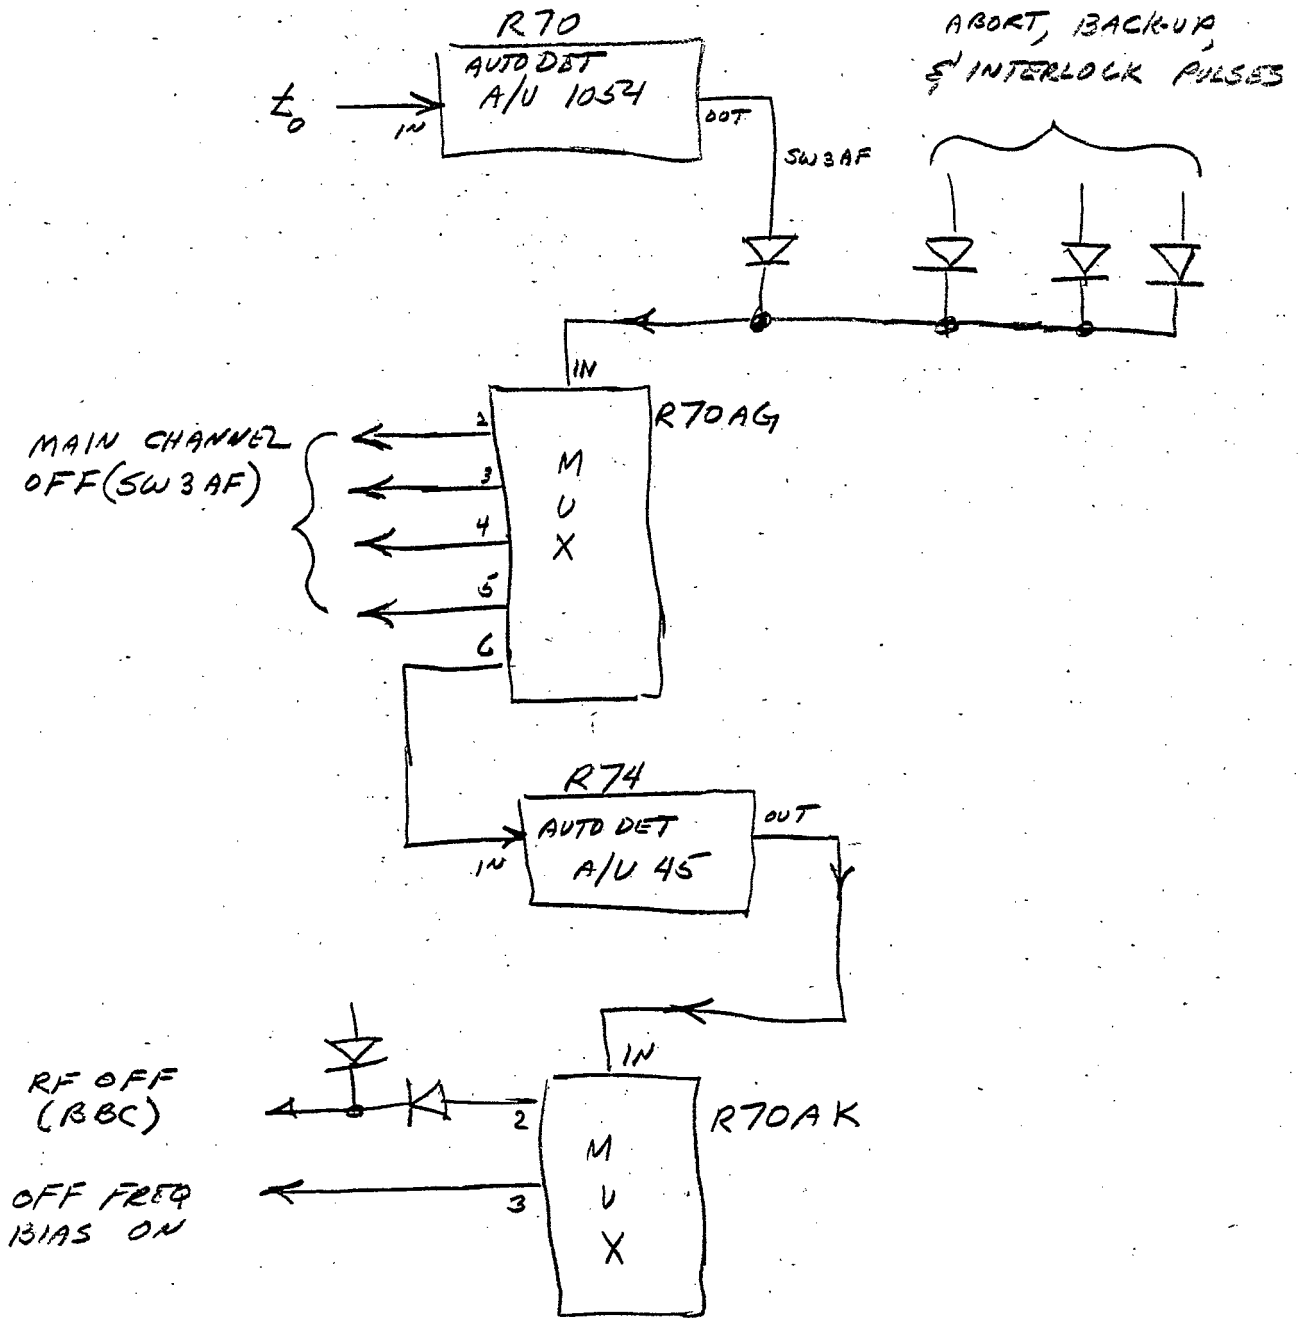 R70
AUTO DET
A/U 1054
t0
IN
OUT
SW3AF
ABORT, BACK-UP,
& INTERLOCK PULSES
IN
R70AG
MUX
2
3
4
5
6
MAIN CHANNEL
OFF (SW3AF)
R74
AUTO DET
A/U 45
IN
OUT
IN
R70AK
MUX
2
3
RF OFF
(BBC)
OFF FREQ
BIAS ON